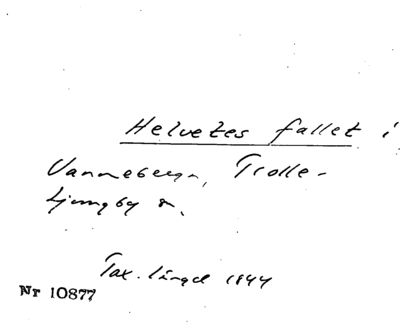 Helvetes fallet i
Vanneberga, Trolle-
Ljungby s.
Tax. längd 1944
Nr 10877